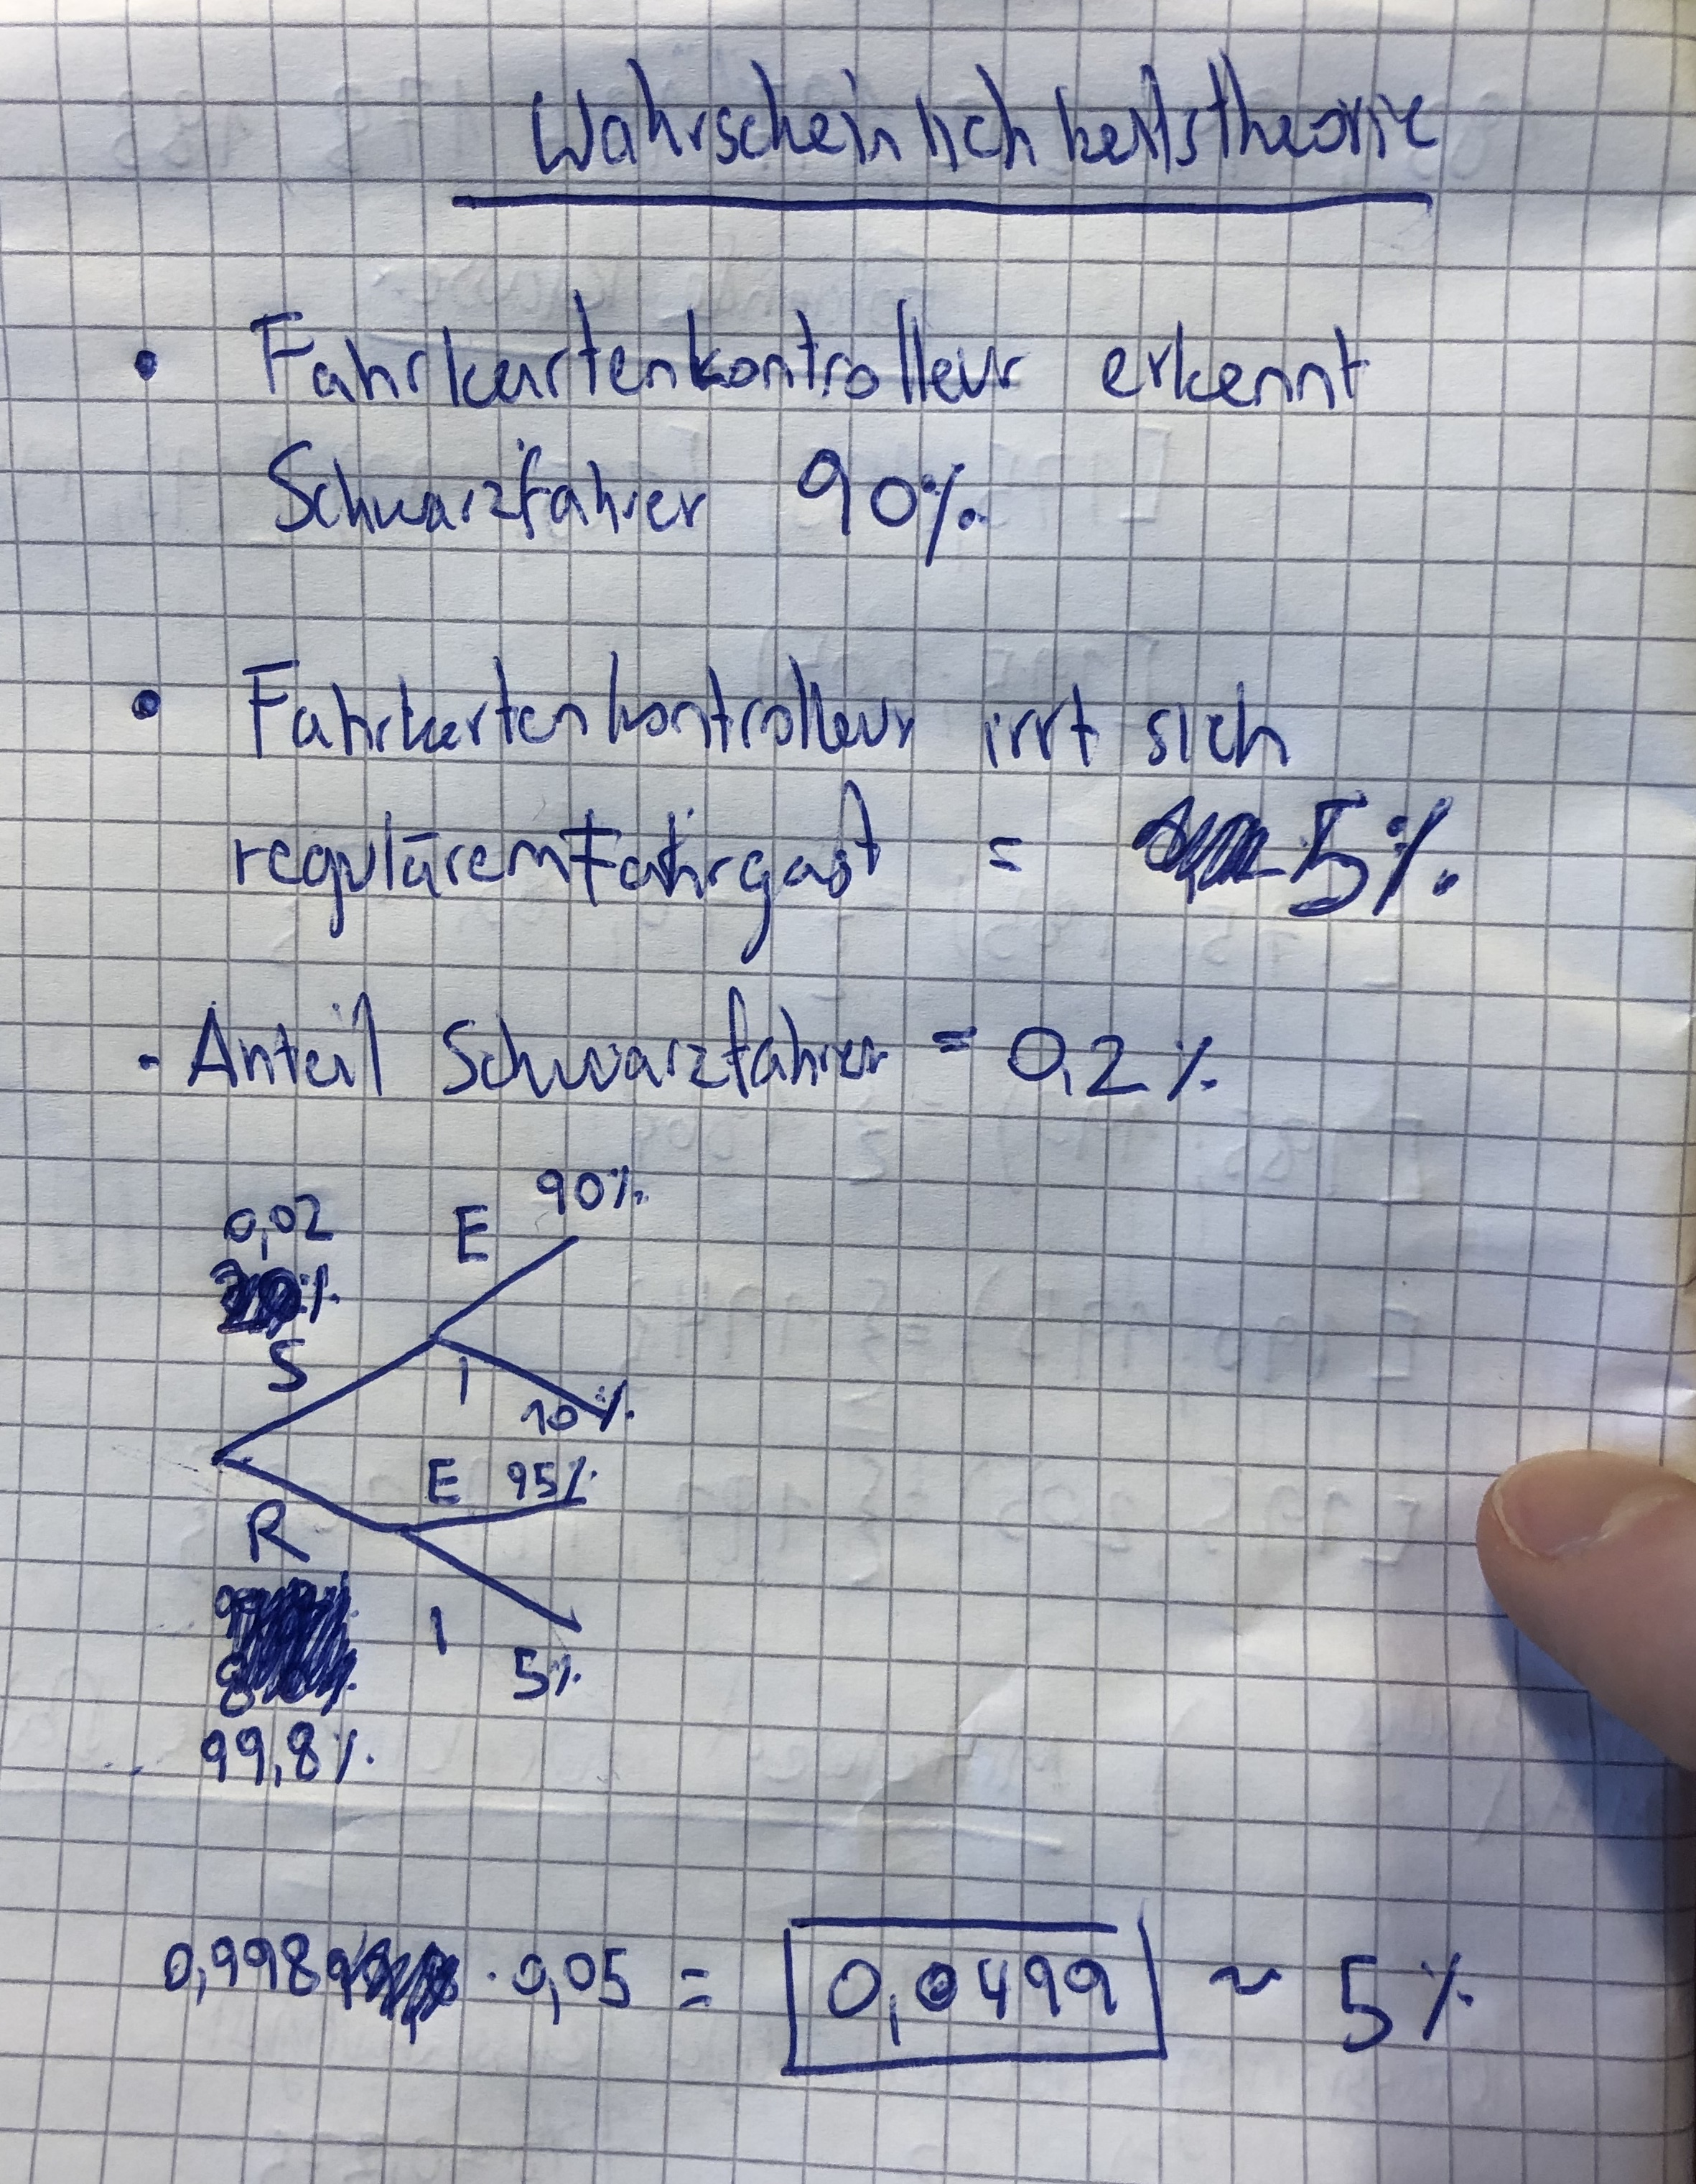 Wahrscheinlichkeitstheorie
• Fahrkartenkontrolleur erkennt
Schwarzfahrer 90%
• Fahrkartenkontrolleur irrt sich
regulärem Fahrgast = 5%
- Anteil Schwarzfahrer = 0,2%
0,02
E 90%
S
I
10%
E 95%
R
I
5%
99,8%
0,998 · 0,05 = 0,0499 ~ 5%